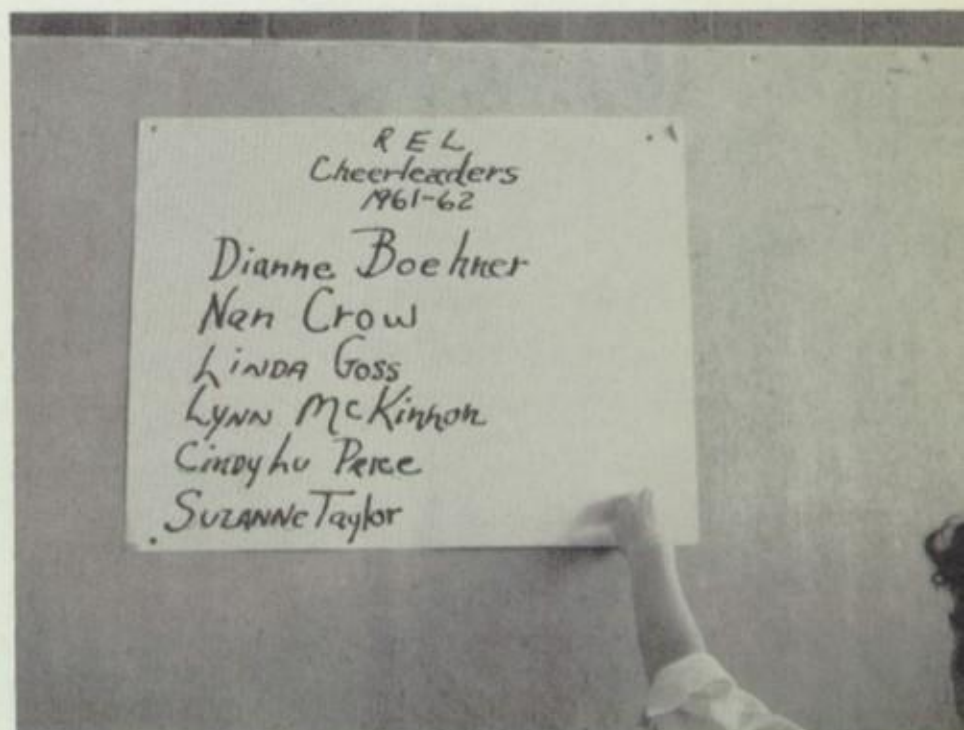 R E L
Cheerleaders
1961-62
Dianne Boehner
Nan Crow
LINDA Goss
LYNN McKinnon
Cindy Lu Perce
SUZANNE Taylor